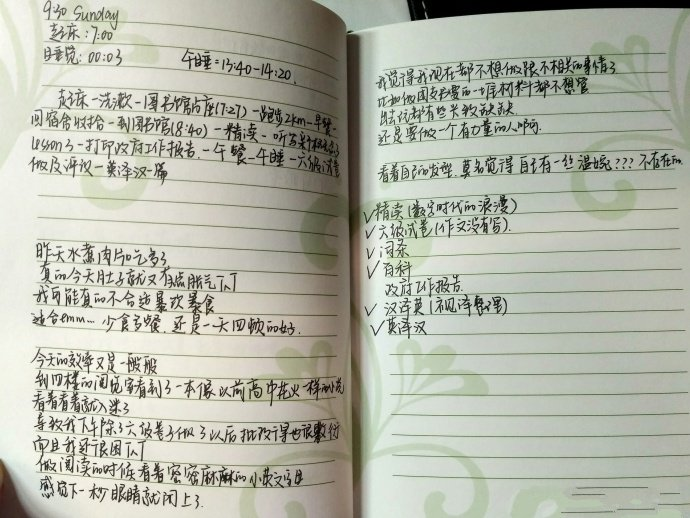 9.30 Sunday
起床:7:00
睡觉:00:03 午睡=13:40-14:20.
起床-洗漱-图书馆占座(17:27)-跑步2km-早餐-
回宿舍收拾-到图书馆(8:40)-精读-听
Lesson3-打印政府工作报告-午餐-午睡-六级试卷
做及评议-英译汉一篇
昨天水煮肉片吃多了
真的今天肚子就又有点胀气TAT
我可能真的不合适暴饮暴食
适合emm...少食多餐 还是一天四顿的好.
今天的效率又是一般般
到四楼的阅览室看到了一本像以前高中花火一样的小说
看着看着就入迷了
导致我下午除了六级卷子做了以后批改得也很敷衍
而且我还很困TAT
做阅读的时候看着密密麻麻的小英文字母
感觉下一秒眼睛就闭上了.
我觉得我现在都不想做跟不相关的事情了
比如做团支书要的一些材料都不想管
出说都有些失败
还是要做一个有力量的人啊.
看着自己的发型.莫名觉得自己有一些温婉???不存在的.
✓精读(数字时代的浪漫)
✓六级试卷(作文没有写).
✓
✓百科
政府工作报告.
✓汉译英(视译整理)
✓英译汉